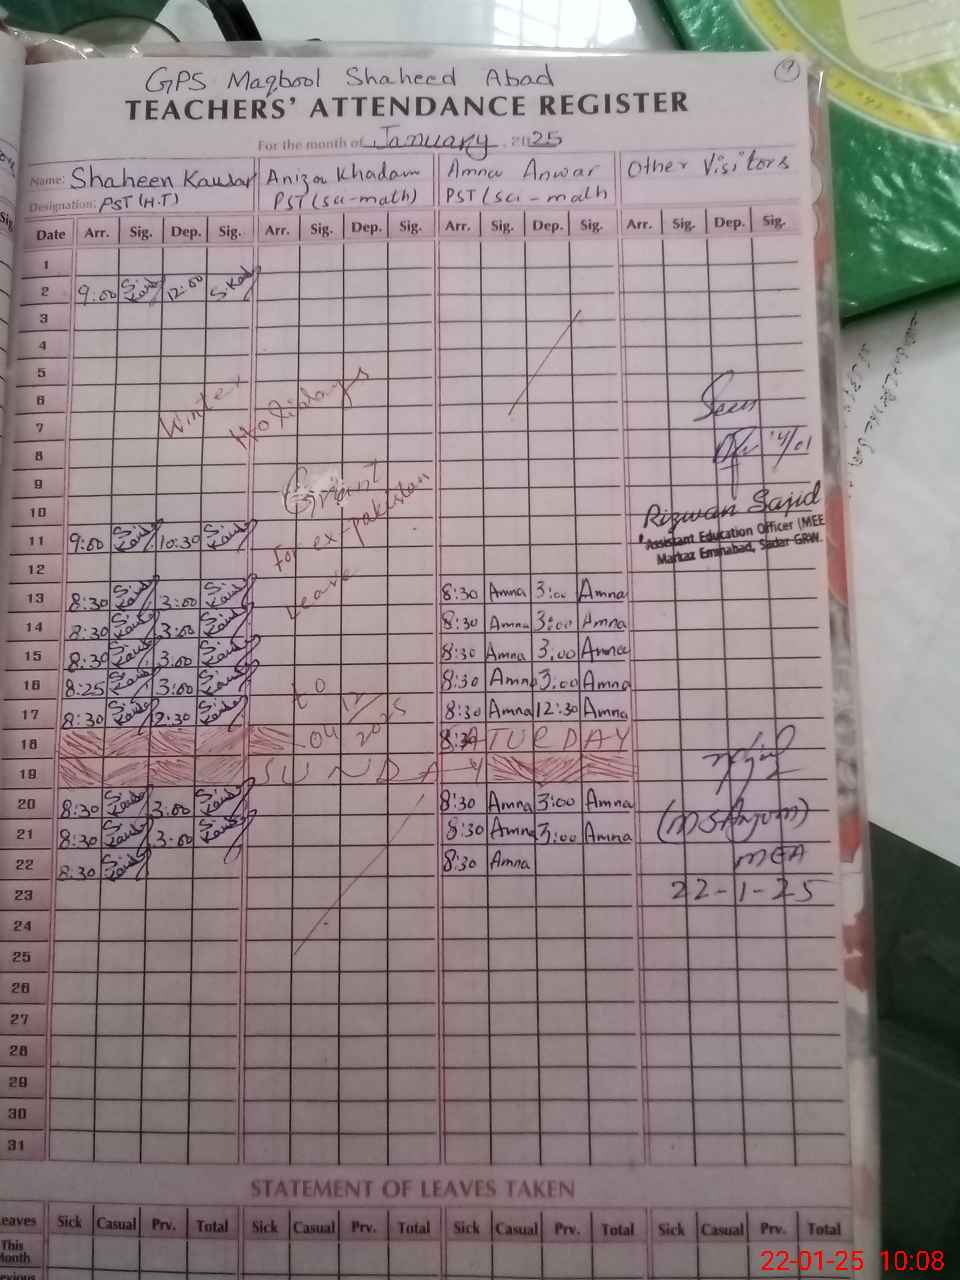 9
GPS Maqbool Shaheed Abad
TEACHERS' ATTENDANCE REGISTER
For the month of January, 2025
Name: Shaheen Kausar Aniza Khadam Amna Anwar Other Visitors
Designation: PST (H.T) PST (sci-math) PST (sci-math
Date Arr. Sig. Dep. Sig. Arr. Sig. Dep. Sig. Arr. Sig. Dep. Sig. Arr. Sig. Dep. Sig.
1
2 9:00 S. Kausar 12:00 S.Kau
3
4
5
6 Winter Holidays Seen
7
8 14/01
9
10 Grant Rizwan Sajid
11 9:00 S. Kausar 10:30 S. Kausar For ex-pakistan Assistant Education Officer (MEE
Markaz Eminabad, Sadar GRW.
12 Leave
13 8:30 S. Kausar 3:00 S. Kausar 8:30 Amna 3:00 Amna
14 8:30 S. Kausar 3:00 S. Kausar 8:30 Amna 3:00 Amna
15 8:30 S. Kausar 3:00 S. Kausar 8:30 Amna 3:00 Amna
16 8:25 S. Kausar 3:00 S. Kausar to 8:30 Amna 3:00 Amna
17 8:30 S. Kausar 2:30 S. Kausar 12 8:30 Amna 12:30 Amna
18 04 2025 SATURDAY
19 SUNDAY
20 8:30 S. Kausar 3:00 S. Kausar 8:30 Amna 3:00 Amna
21 8:30 S. Kausar 3:00 S. Kausar 8:30 Amna 3:00 Amna (MSAnjum)
22 8:30 S. Kausar 8:30 Amna MEA
23 22-1-25
24
25
26
27
28
29
30
31
STATEMENT OF LEAVES TAKEN
Leaves Sick Casual Prv. Total Sick Casual Prv. Total Sick Casual Prv. Total Sick Casual Prv. Total
This
Month
22-01-25 10:08